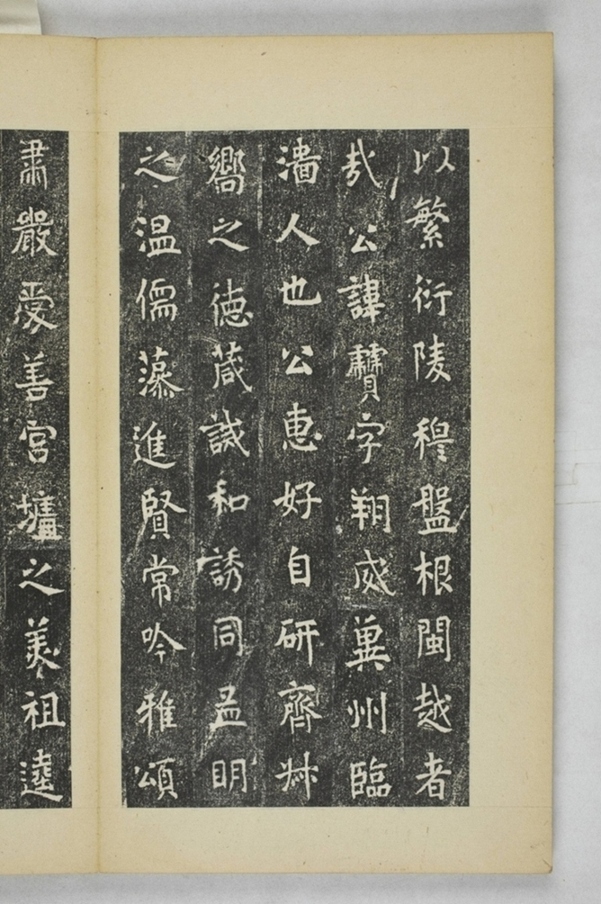 以繁衍陵穆盤根閩越者
哉公諱字翔威冀州臨
淄人也公惠好自研齊艸
嚮之德葴誠和誘同孟明
之温儒藻進賢常吟雅頌
肅嚴愛善宮壚之美祖逵